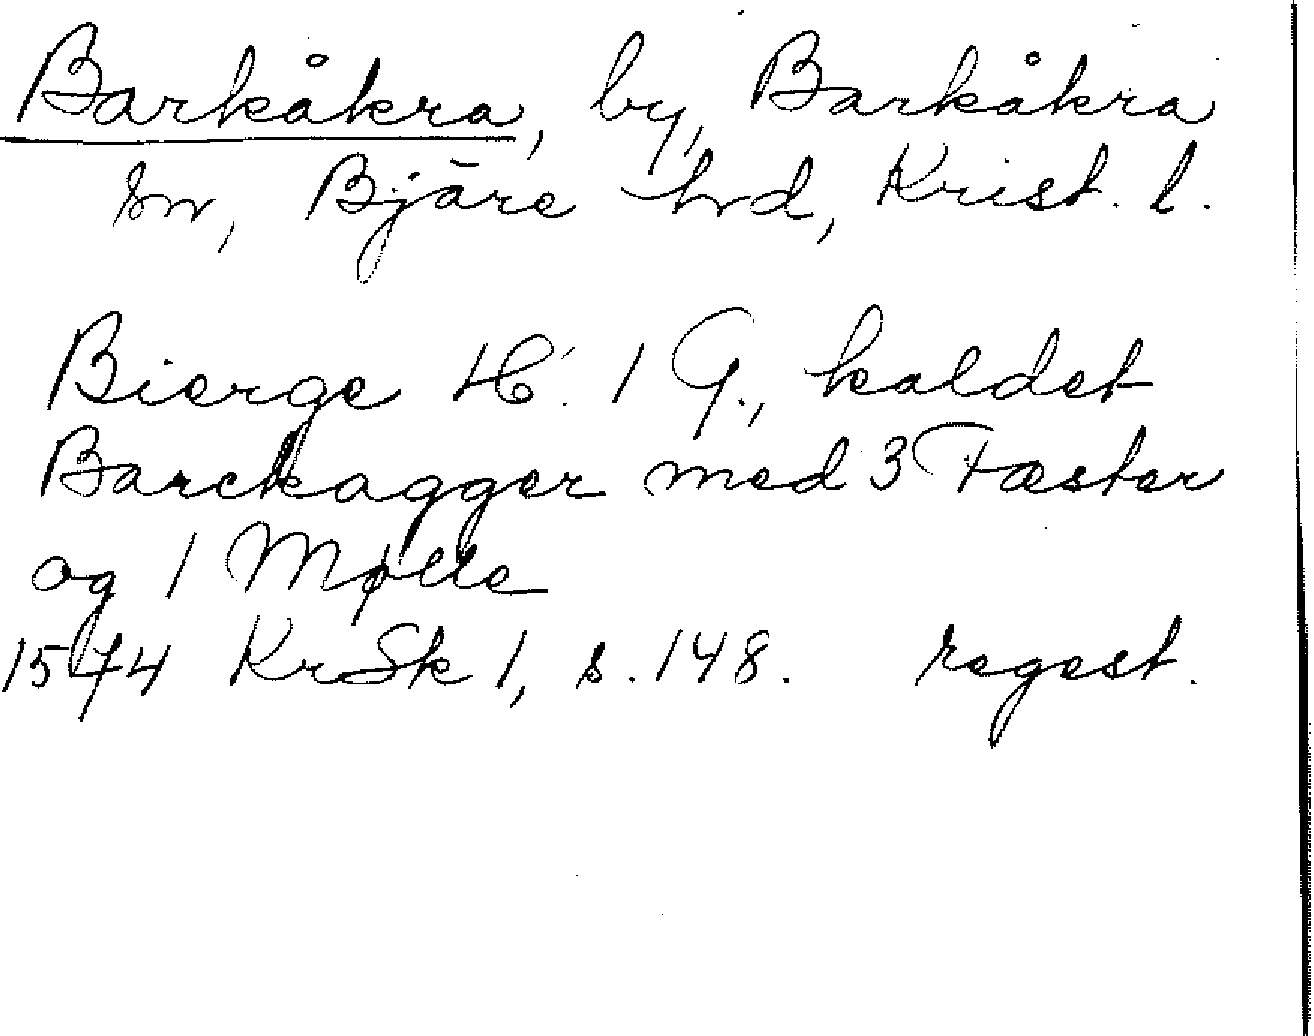 Barkåkra, by, Barkåkra
sn, Bjäre hd, Krist. l.
Bierge H. 1 G., kaldet
Barckagger med 3 Fæster
og 1 Mølle
1574 KrSk 1, s. 148. regest.